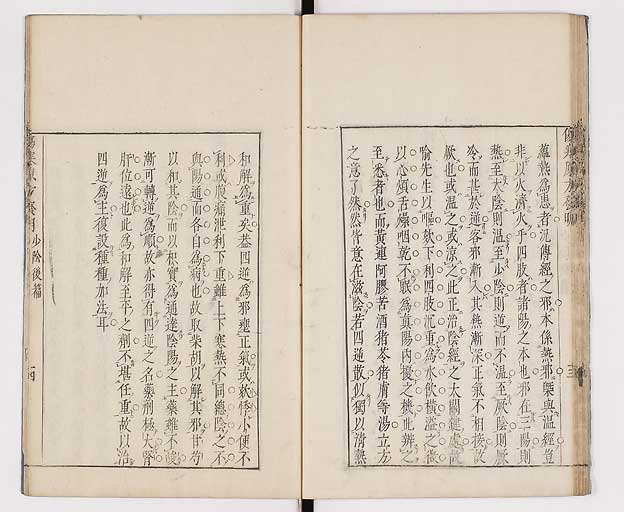 蘊熱爲患者況傳經之邪本係熱邪槩與溫經豈
非以火濟火乎四肢者諸陽之本也邪在三陽則
熱至太陰則溫至少陰則逆而不溫至厥陰則厥
冷而甚於逆客邪漸入其熱漸深正氣不相接故
厥也或溫之或涼之此正治陰經之大關鍵處故
喻先生以嘔欬下利四肢沉重爲水飲橫溢之徵
以心煩舌燥咽乾不眠爲真陽內擾之機此辨之
至悉者也而黃連阿膠苦酒猪苓猪膚等湯立方
之意了然然皆意在滋陰若四逆散似獨以清熱
和解爲重矣葢四逆爲邪壅正氣或欬悸小便不
利或腹痛泄利下重雖上下寒熱不同總陰之不
與陽通而各自爲病也故取柴胡以解其邪甘芍
以和其陰而以枳實爲通達陰陽之主藥雖不
漸可轉逆爲順故亦得有四逆之名藥劑極大腎
肝位遠也此爲和解至平之劑不堪任重故以治
四逆爲主復設種種加法耳
少陰後篇
四